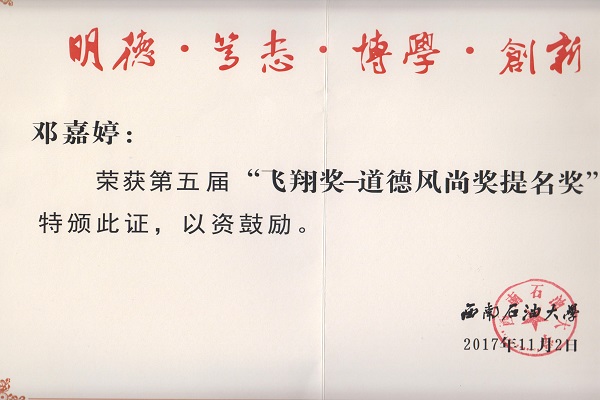 明德·笃志·博學·創新
邓嘉婷：
荣获第五届“飞翔奖—道德风尚奖提名奖”
特颁此证，以资鼓励。
西南石油大学
2017年11月2日